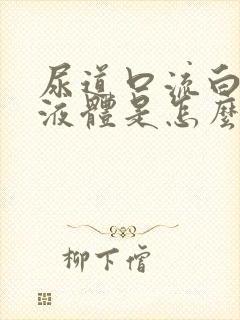 尿道口流白
液體是怎麼
柳下僧